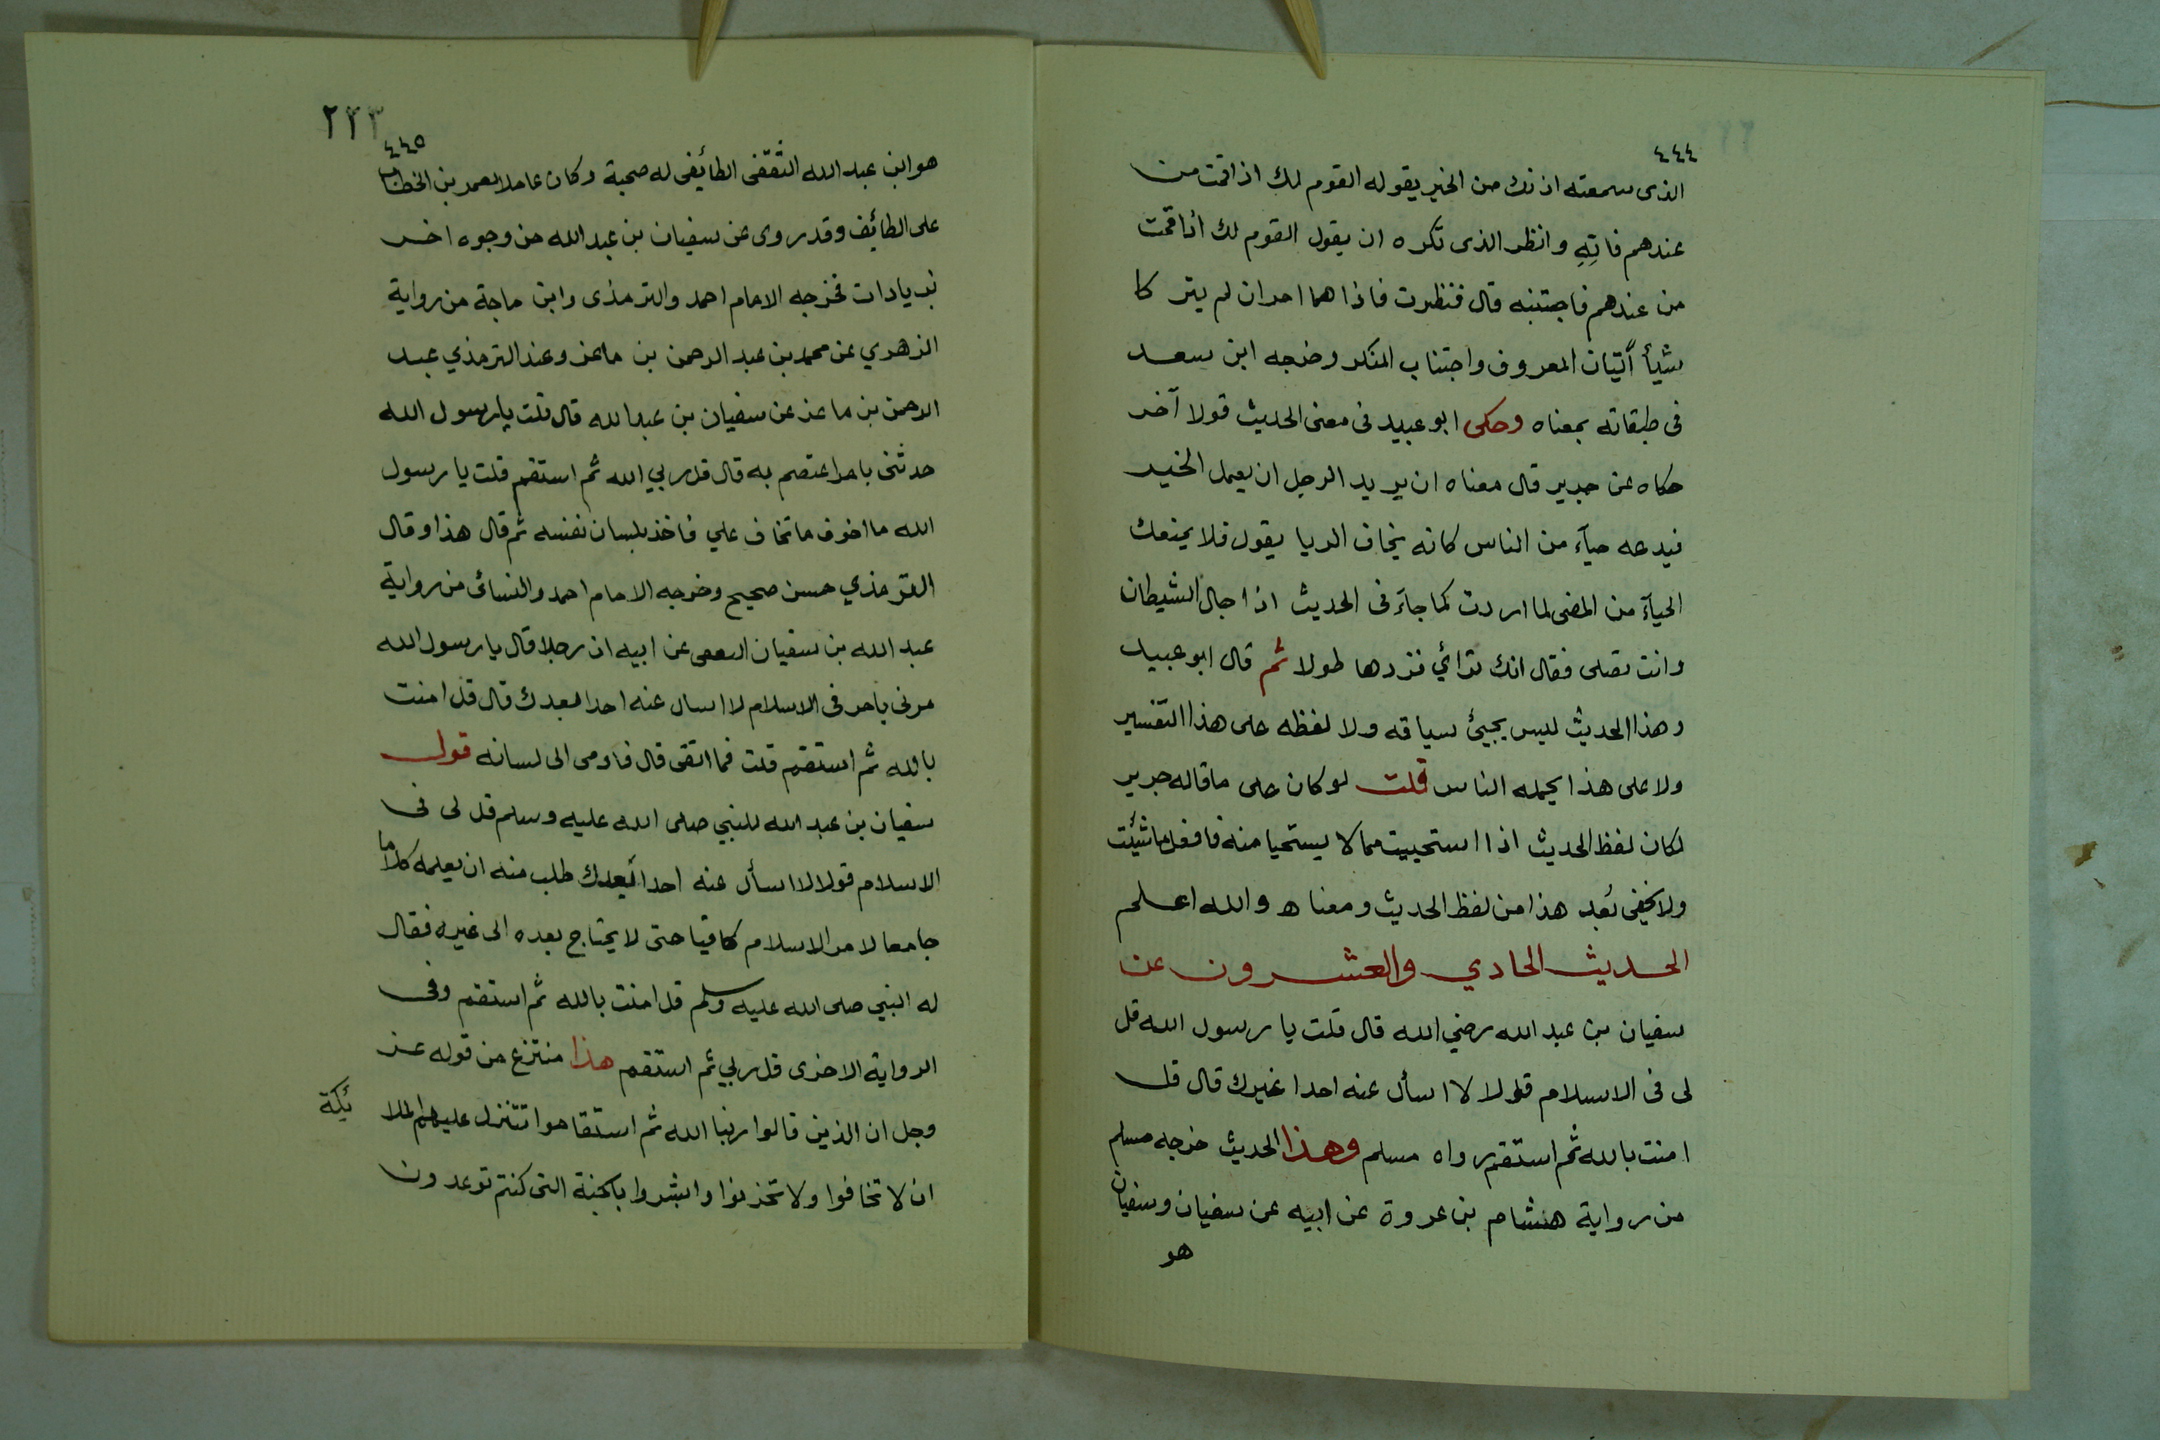 ٤٤٤
الذى سمعته اذنك من الخير يقوله القوم لك اذا قمت من
عندهم فاتِهِ وانظر الذى تكره ان يقول القوم لك اذا قمت
من عندهم فاجتنبه قال فنظرت فاذا هما امران لم يتركا
شيأ اتيان المعروف واجتناب المنكر وخرجه ابن سعد
فى طبقاته بمعناه وحكى ابو عبيد فى معنى الحديث قولا آخر
حكاه عن جرير قال معناه ان يريد الرجل ان يعمل الخير
فيدعه حيآء من الناس كانه يخاف الريا يقول فلا يمنعك
الحيآء من المضى لما اردت كما جآء فى الحديث اذا جاك الشيطان
وانت تصلى فقال انك ترائي فزدها طولا ثم قال ابو عبيد
وهذا الحديث ليس يجيئ سياقه ولا لفظه على هذا التفسير
ولا على هذا يحمله الناس قلت لو كان على ما قاله جرير
لكان لفظ الحديث اذا استحييت مما لا يستحيا منه فافعل ما شئت
ولا يخفى بُعد هذا من لفظ الحديث ومعناه والله اعلم
الحديث الحادي والعشرون عن
سفيان بن عبد الله رضي الله قال قلت يا رسول الله قل
لى فى الاسلام قولا لا اسأل عنه احدا غيرك قال قل
امنت بالله ثم استقم رواه مسلم وهذا الحديث خرجه مسلم
من رواية هشام بن عروة عن ابيه عن سفيان وسفيان
هو
٢٢٣
٤٤٥
هو ابن عبد الله الثقفى الطائفى له صحبة وكان عاملا لعمر بن الخطاب
على الطائف وقد روى عن سفيان بن عبد الله من وجوه اخر
بزيادات فخرجه الامام احمد والترمذى وابن ماجة من رواية
الزهري عن محمد بن عبد الرحمن بن ماعز وعند الترمذي عبد
الرحمن بن ماعز عن سفيان بن عبد الله قال قلت يا رسول الله
حدثنى بامر اعتصم به قال قل ربي الله ثم استقم قلت يا رسول
الله ما اخوف ما تخاف علي فاخذ بلسان نفسه ثم قال هذا وقال
الترمذي حسن صحيح وخرجه الامام احمد والنسائى من رواية
عبد الله بن سفيان عن ابيه ان رجلا قال يا رسول الله
مرنى بامر فى الاسلام لا اسال عنه احدا بعدك قال قل امنت
بالله ثم استقم قلت فما اتقى قال فاومى الى لسانه قول
سفيان بن عبد الله للنبي صلى الله عليه وسلم قل لى فى
الاسلام قولا لا اسأل عنه احدا بعدك طلب منه ان يعلمه كلاما
جامعا لامر الاسلام كافيا حتى لا يحتاج بعده الى غيره فقال
له النبي صلى الله عليه وسلم قل امنت بالله ثم استقم وفى
الرواية الاخرى قل ربي ثم استقم هذا منتزع من قوله عز
وجل ان الذين قالوا ربنا الله ثم استقاموا تتنزل عليهم الملا
ئكة
ان لا تخافوا ولا تحزنوا وابشروا بالجنة التى كنتم توعدون